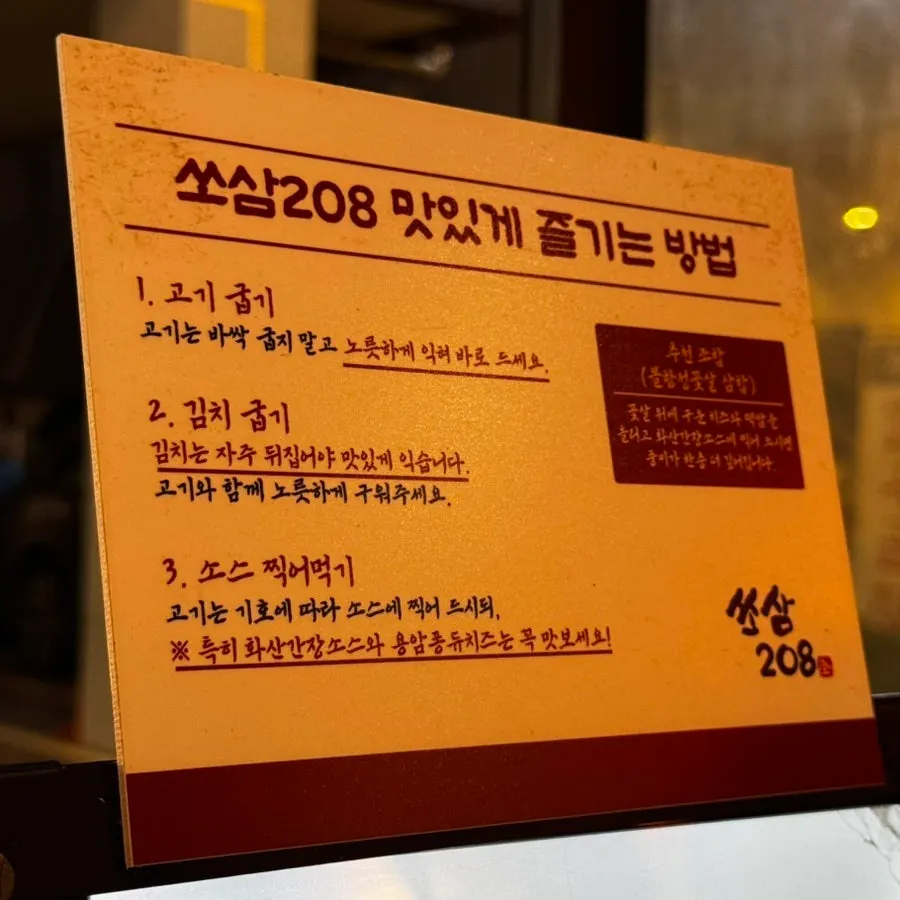 쏘삼208 맛있게 즐기는 방법
1. 고기 굽기
고기는 바싹 굽지 말고 노릇하게 익혀 바로 드세요.
2. 김치 굽기
김치는 자주 뒤집어야 맛있게 익습니다.
고기와 함께 노릇하게 구워주세요.
3. 소스 찍어먹기
고기는 기호에 따라 소스에 찍어 드시되,
※ 특히 화산간장소스와 용암퐁듀치즈는 꼭 맛보세요!
추천 조합
(불향성꽃살 삼합)
꽃살 위에 구운 치즈와 떡밥을
올리고 화산간장소스에 찍어 드시면
풍미가 한층 더 깊어집니다.
쏘삼
208